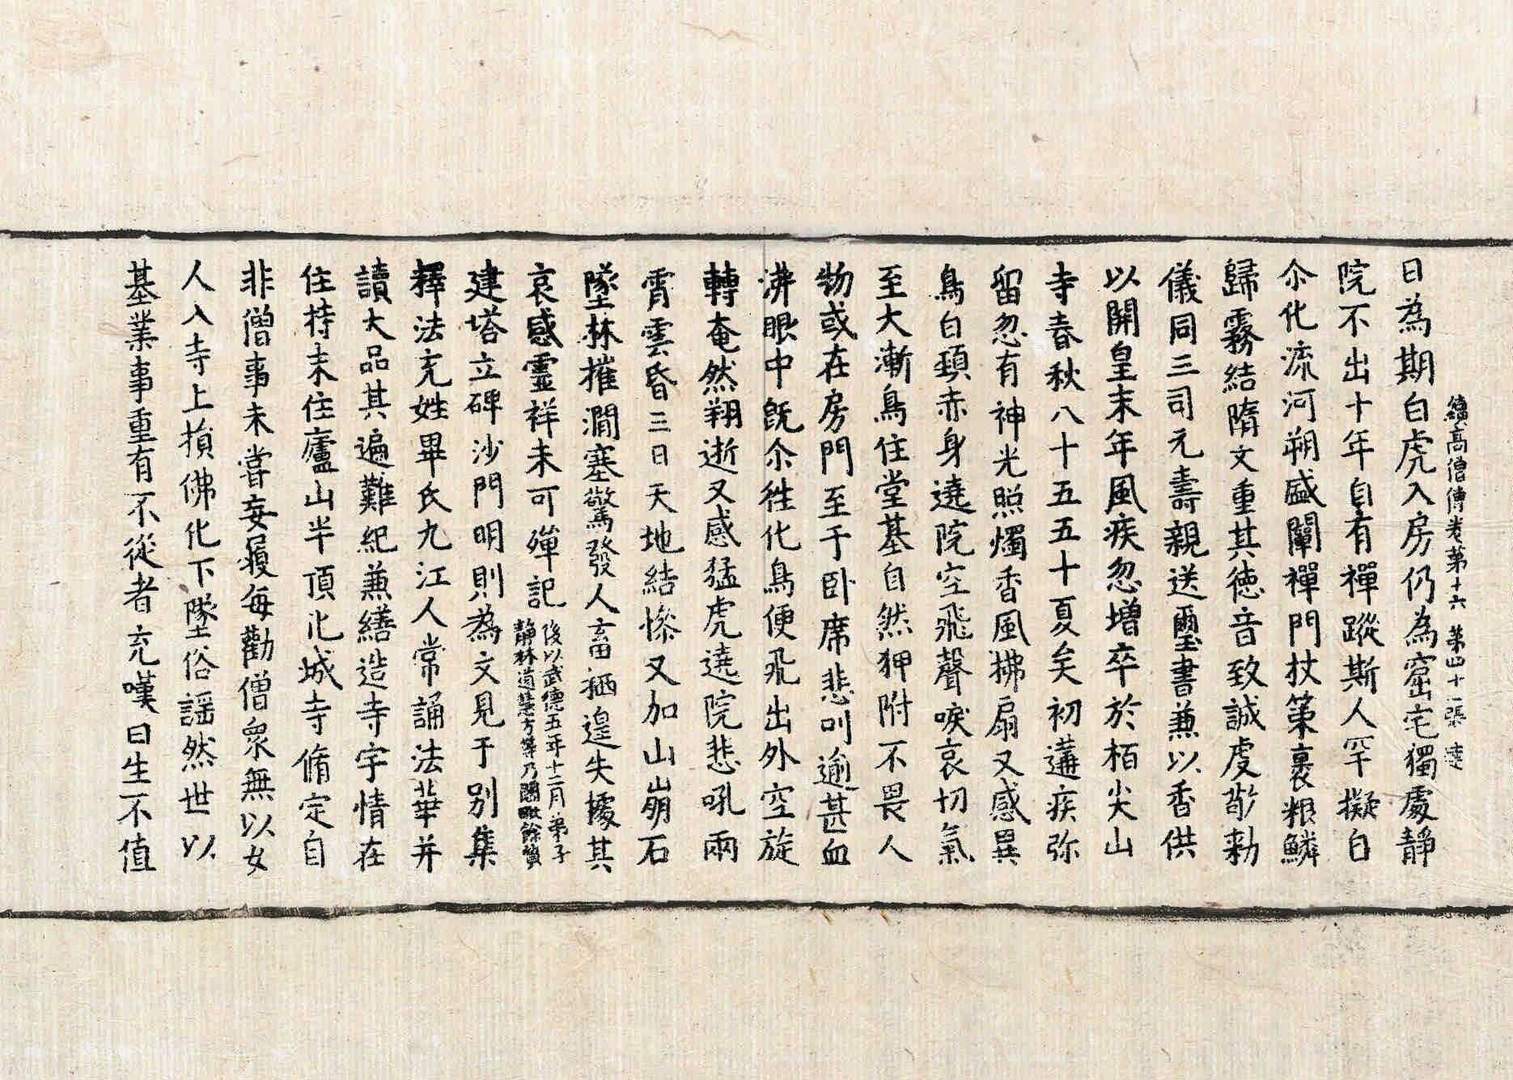 續高僧傳卷第十六 第四十一張 逵
日為期白虎入房仍為窟宅獨處靜
院不出十年自有禪蹤斯人罕擬日
尒化流河朔盛闡禪門杖策裹粮鱗
歸霧結隋文重其德音致誠虔敬勅
儀同三司元壽親送璽書兼以香供
以開皇末年風疾忽增卒於栢尖山
寺春秋八十五五十夏矣初遘疾弥
留忽有神光照燭香風拂扇又感異
鳥白頸赤身遶院空飛聲唳哀切氣
至大漸鳥住堂基自然狎附不畏人
物或在房門至于卧席悲叫逾甚血
沸眼中既尒徃化鳥便飛出外空旋
轉奄然翔逝又感猛虎遶院悲吼兩
霄雲昏三日天地結慘又加山崩石
墜林摧澗塞驚發人畜栖遑失據其
哀感靈祥未可殫記
後以武德五年十二月弟子
靜林道慧方等乃闍毗餘質
建塔立碑沙門明則為文見于别集
釋法充姓畢氏九江人常誦法華并
讀大品其遍難紀兼繕造寺宇情在
住持末住廬山半頂化城寺脩定自
非僧事未甞妄履每勸僧衆無以女
人入寺上損佛化下墜俗謡然世以
基業事重有不從者充嘆曰生不值